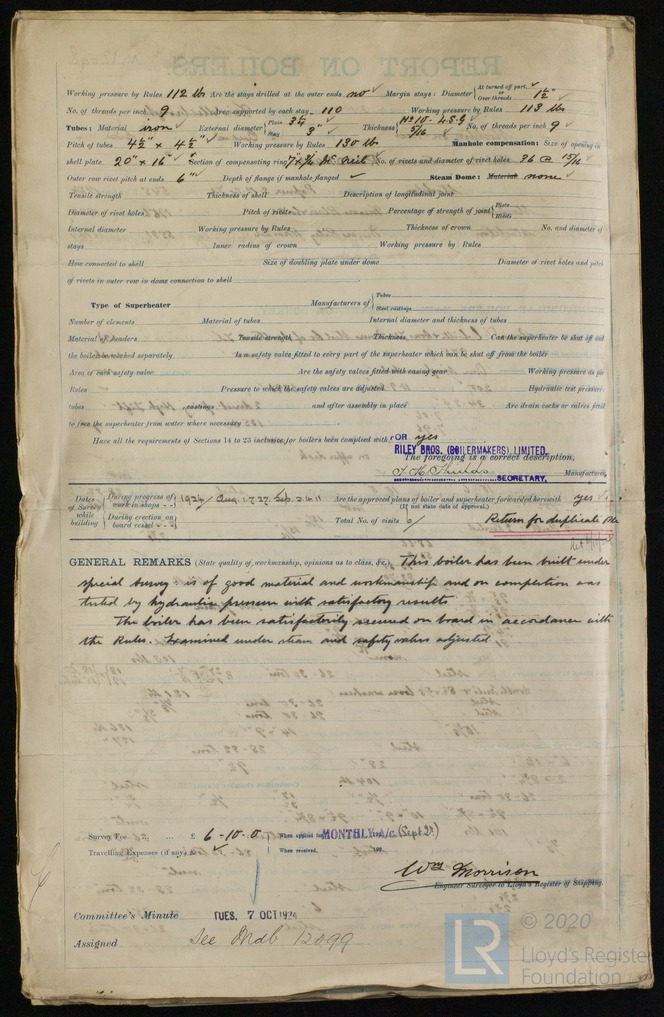 Working pressure by Rules 112 lb Are the stays drilled at the outer ends no Margin stays: Diameter { At turned off part, or Over threads 1½"
No. of threads per inch 9 Area supported by each stay 110 Working pressure by Rules 113 lb
Tubes: Material iron External diameter { Plain 3¼ Stay 3" Thickness { No. of threads per inch 9
Pitch of tubes 4½" x 4½" Working pressure by Rules 130 lb Manhole compensation: Size of opening in
shell plate 20" x 16" Section of compensating ring No. of rivets and diameter of rivet holes 36 @ 15/16
Outer row rivet pitch at ends 6" Depth of flange if manhole flanged Steam Dome: Material none
Tensile strength Thickness of shell Description of longitudinal joint
Diameter of rivet holes Pitch of rivets Percentage of strength of joint { Plate Rivets
Internal diameter Working pressure by Rules Thickness of crown No. and diameter of
stays Inner radius of crown Working pressure by Rules
How connected to shell Size of doubling plate under dome Diameter of rivet holes and pitch
of rivets in outer row in dome connection to shell
Type of Superheater Manufacturers of { Tubes Steel castings
Number of elements Material of tubes Internal diameter and thickness of tubes
Material of headers Tensile strength Thickness Can the superheater be shut off and
the boiler be worked separately Is a safety valve fitted to every part of the superheater which can be shut off from the boiler
Area of each safety valve Are the safety valves fitted with easing gear Working pressure as per
Rules Pressure to which the safety valves are adjusted Hydraulic test pressure:
tubes castings and after assembly in place Are drain cocks or valves fitted
to free the superheater from water where necessary
Have all the requirements of Sections 14 to 25 inclusive for boilers been complied with yes
FOR
RILEY BROS. (BOILERMAKERS) LIMITED,
The foregoing is a correct description,
Manufacturer.
SECRETARY.
Dates of Survey while building { During progress of work in shops - - 1924 Aug. 1. 7. 27. Sep. 2. 4. 11 Are the approved plans of boiler and superheater forwarded herewith yes
(If not state date of approval.)
During erection on board vessel - - Total No. of visits Return for duplicate
GENERAL REMARKS (State quality of workmanship, opinions as to class, &c.) This boiler has been built under
special survey: is of good material and workmanship and on completion was
tested by hydraulic pressure with satisfactory results
The boiler has been satisfactorily secured on board in accordance with
the Rules. Examined under steam and safety valves adjusted
Survey Fee ... ... £ 6-10-0 When applied for MONTHLY a/c. (Sept 24)
Travelling Expenses (if any) £ When received, 192
Wm Morrison
Engineer Surveyor to Lloyd's Register of Shipping.
Committee's Minute TUES. 7 OCT 1924
Assigned See 12099
LR
© 2020
Lloyd's Register
Foundation